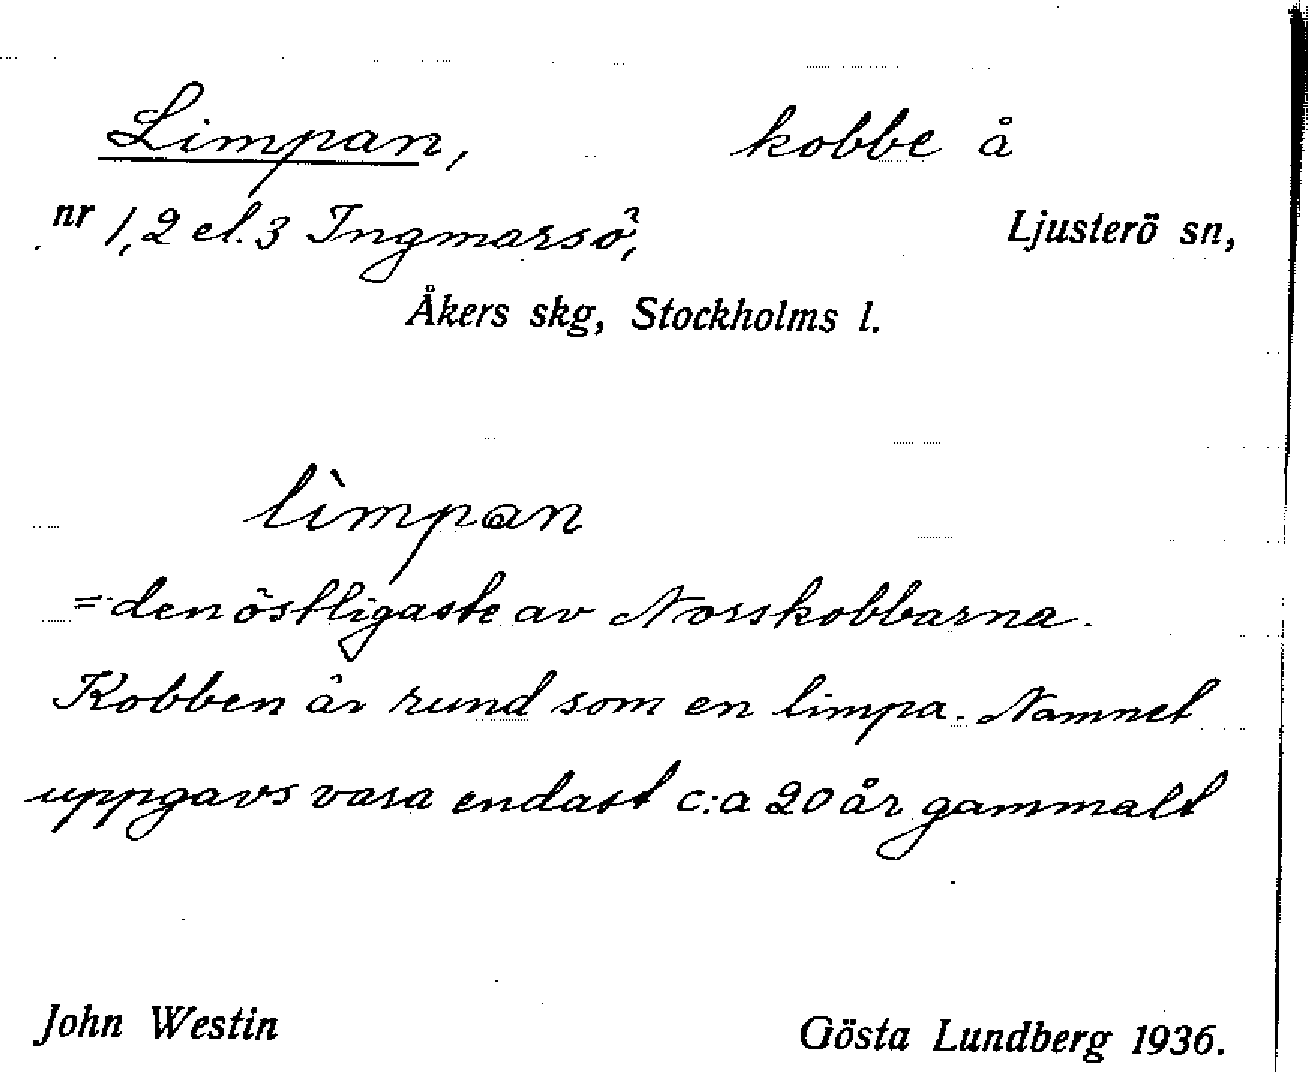 Limpan, kobbe å
nr 1, 2 el. 3 Ingmarsö, Ljusterö sn,
Åkers skg, Stockholms l.
lìmpan
= den östligaste av Norskobbarna.
Kobben är rund som en limpa. Namnet
uppgavs vara endast c:a 20 år gammalt
John Westin Gösta Lundberg 1936.